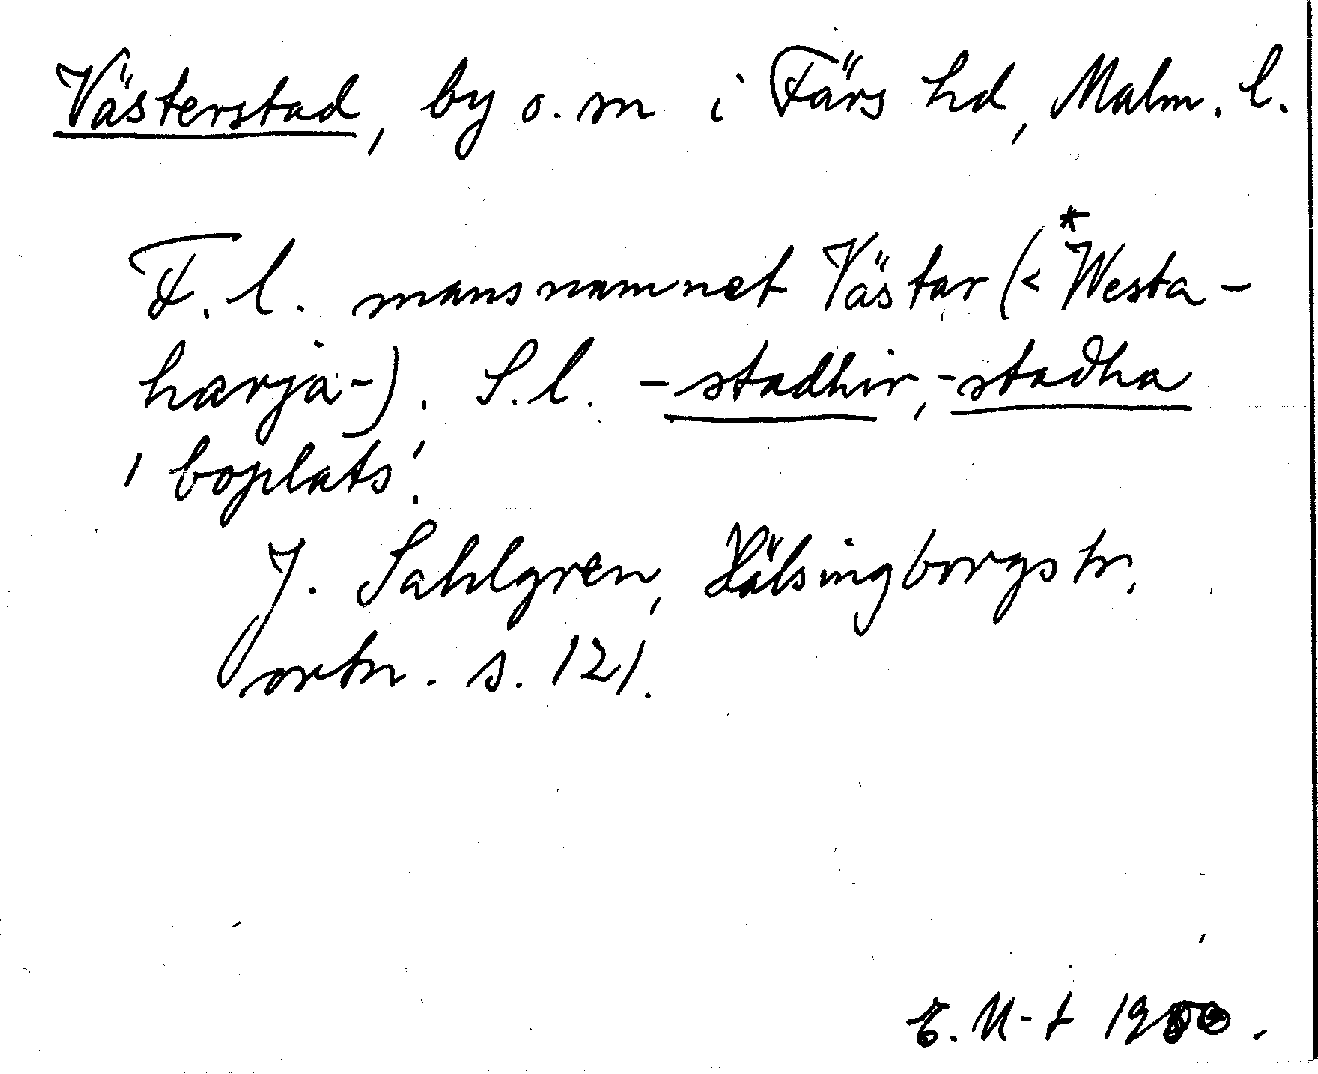 Västerstad, by o. sn i Färs hd, Malm. l.
F. l. mansnamnet Västar (< *Westa-
harja-). S. l. -stadhir, -stadha
'boplats'.
J. Sahlgren, Hälsingborgstr.
ortn. s. 121.
E. M-t 19